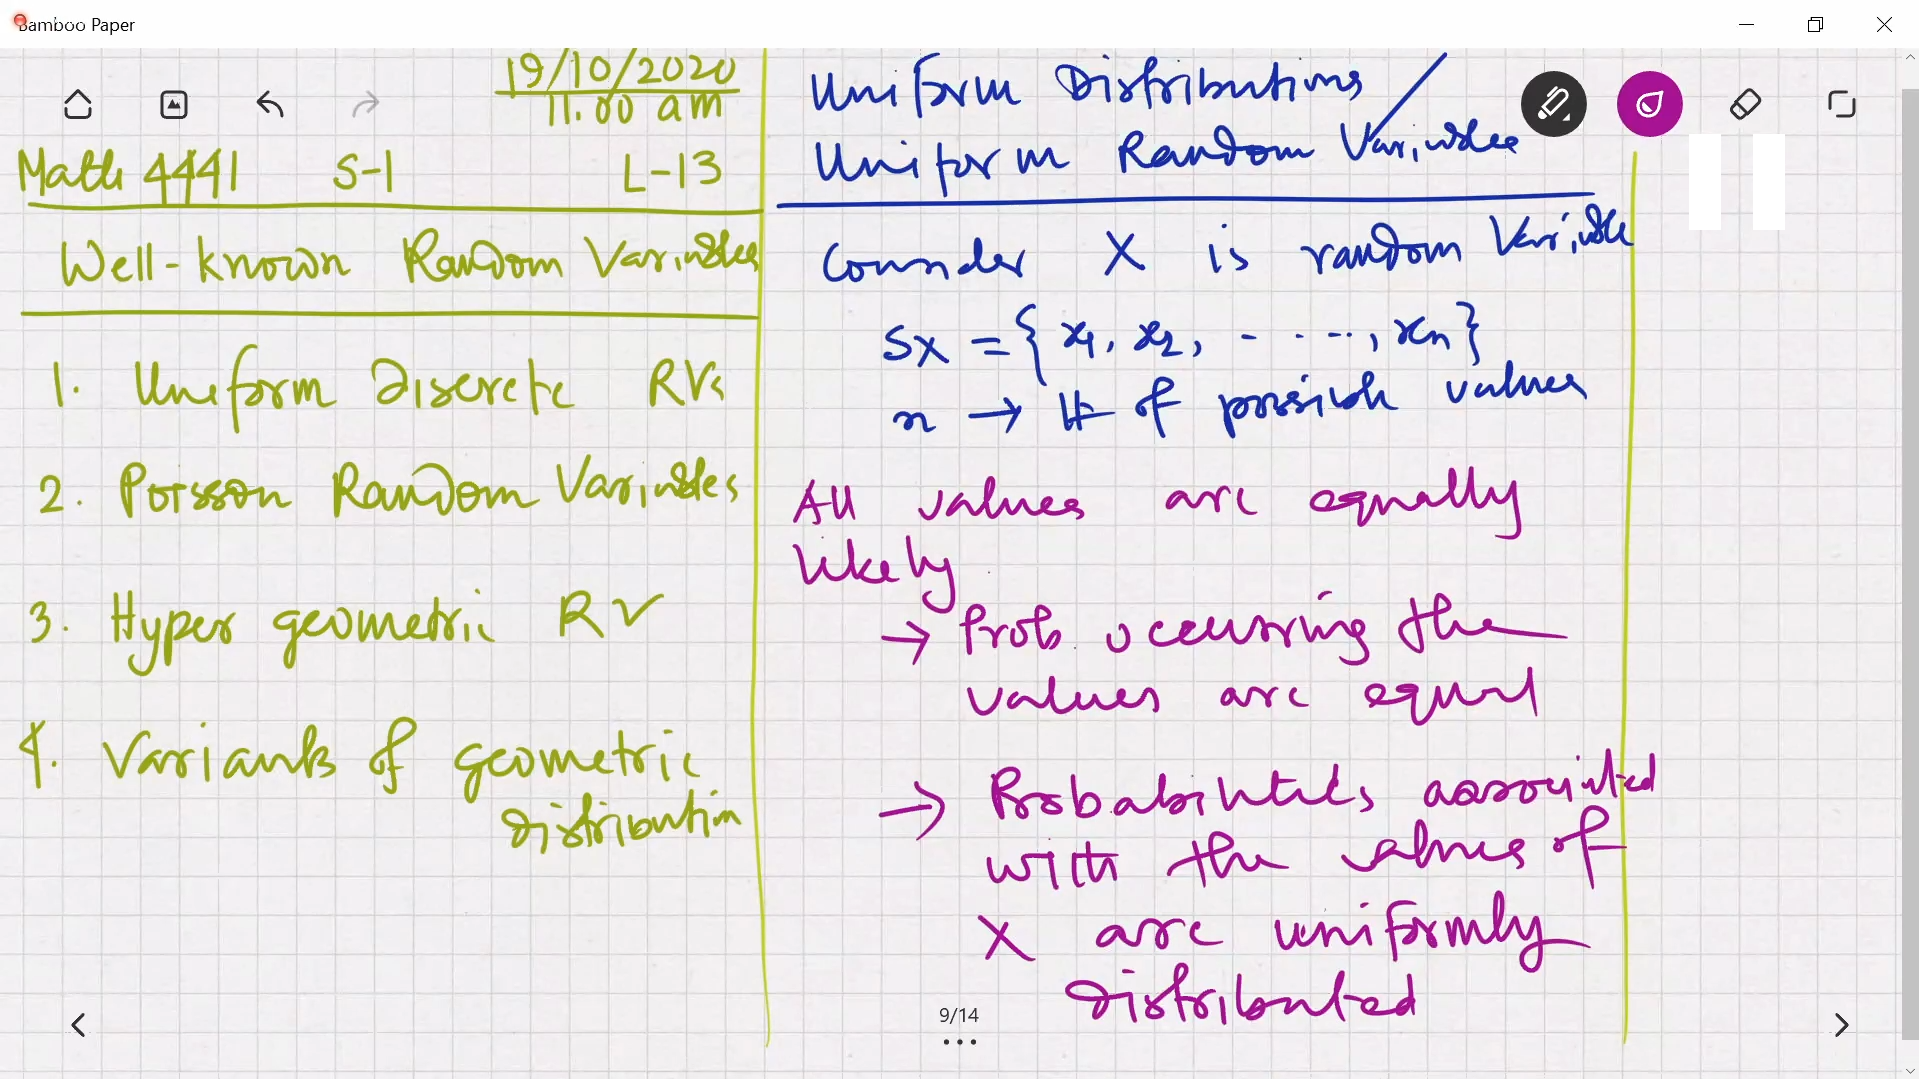 Bamboo Paper
19/10/2020
11.00 am
Math 4441 S-1 L-13
Well-known Random Variables
1. Uniform Discrete RVs
2. Poisson Random Variables
3. Hyper geometric RV
4. Variants of geometric
distribution
Uniform Distributions /
Uniform Random Variables
Consider X is random Variable
SX = { x1, x2, - - - - -, xn }
n → # of possible values
All values are equally
likely
→ Prob occurring the
values are equal
→ Probabilities associated
with the values of
X are uniformly
distributed
9/14